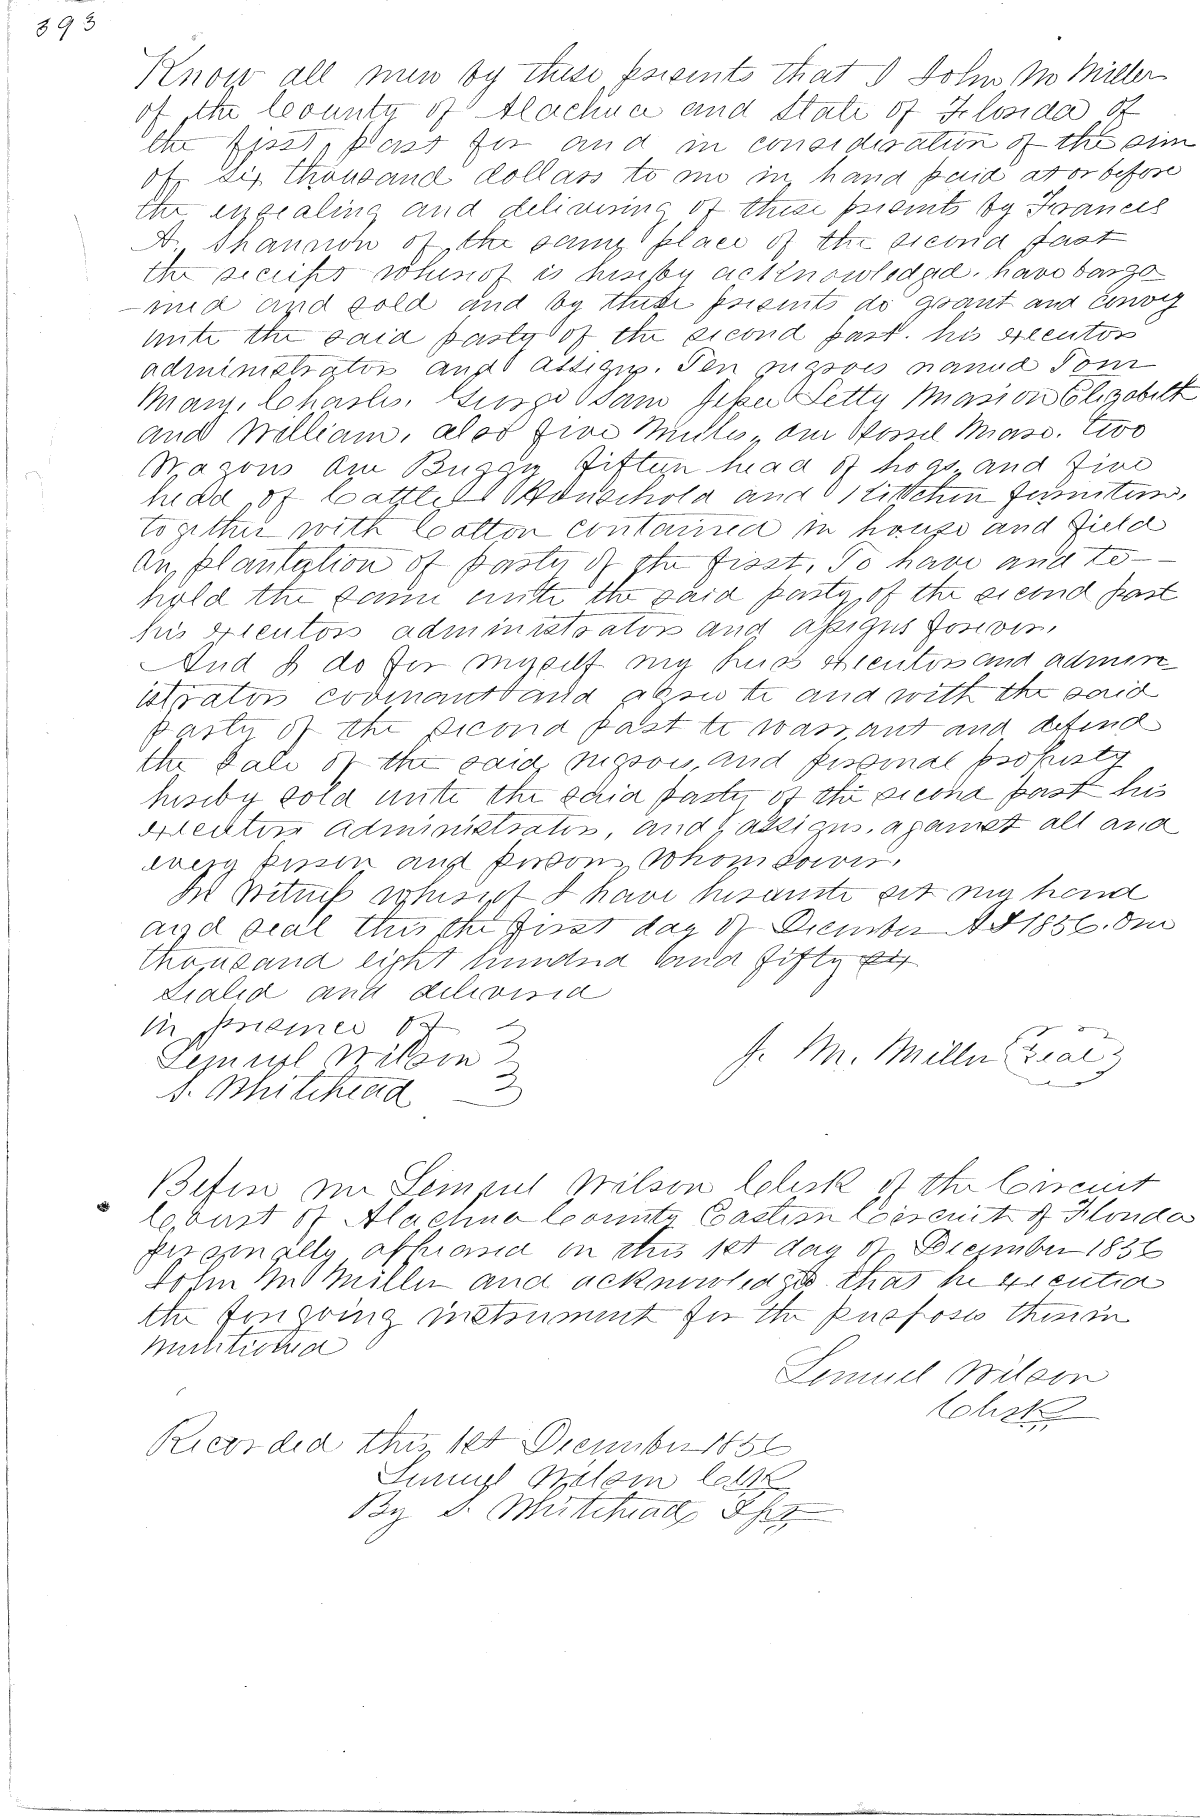 393
Know all men by these presents that I John M Miller
of the County of Alachua and State of Florida of
the first part for and in consideration of the sum
of six thousand dollars to me in hand paid at or before
the ensealing and delivering of these presents by Frances
A. Shannon of the same place of the second part
the receipt whereof is hereby acknowledged. have barga
-ined and sold and by these presents do grant and convey
unto the said party of the second part. his executors
administrators and assigns. Ten negroes named Tom
Mary, Charles. George Sam Letty Marion Elizabeth
and William, also five Mules, one Sorrel Mare. two
Wagons one Buggy fifteen head of hogs, and five
head of Cattle Household and Kitchen furniture,
together with Cotton contained in house and field
on plantation of party of the first, To have and to -
hold the same unto the said party of the second part
his executors administrators and assigns forever.
And I do for myself my heirs executors and admin
istrators covenant and agree to and with the said
party of the second part to warrant and defend
the sale of the said negroes, and personal property
hereby sold unto the said party of the second part his
executors administrators, and assigns. against all and
every person and persons whomsoever.
In Witness whereof I have hereunto set my hand
and seal this the first day of December AD 1856. One
thousand eight hundred and fifty six
Sealed and delivered
in presence of
Lemuel Wilson
S. Whitehead
J. M. Miller Seal
Before me Lemuel Wilson Clerk of the Circuit
Court of Alachua County Eastern Circuit of Florida
personally appeared on this 1st day of December 1856
John M Miller and acknowledged that he executed
the foregoing instrument for the purposes therein
mentioned
Lemuel Wilson
Clerk
Recorded this 1st December 1856
Lemuel Wilson Clk
By S. Whitehead Dpt